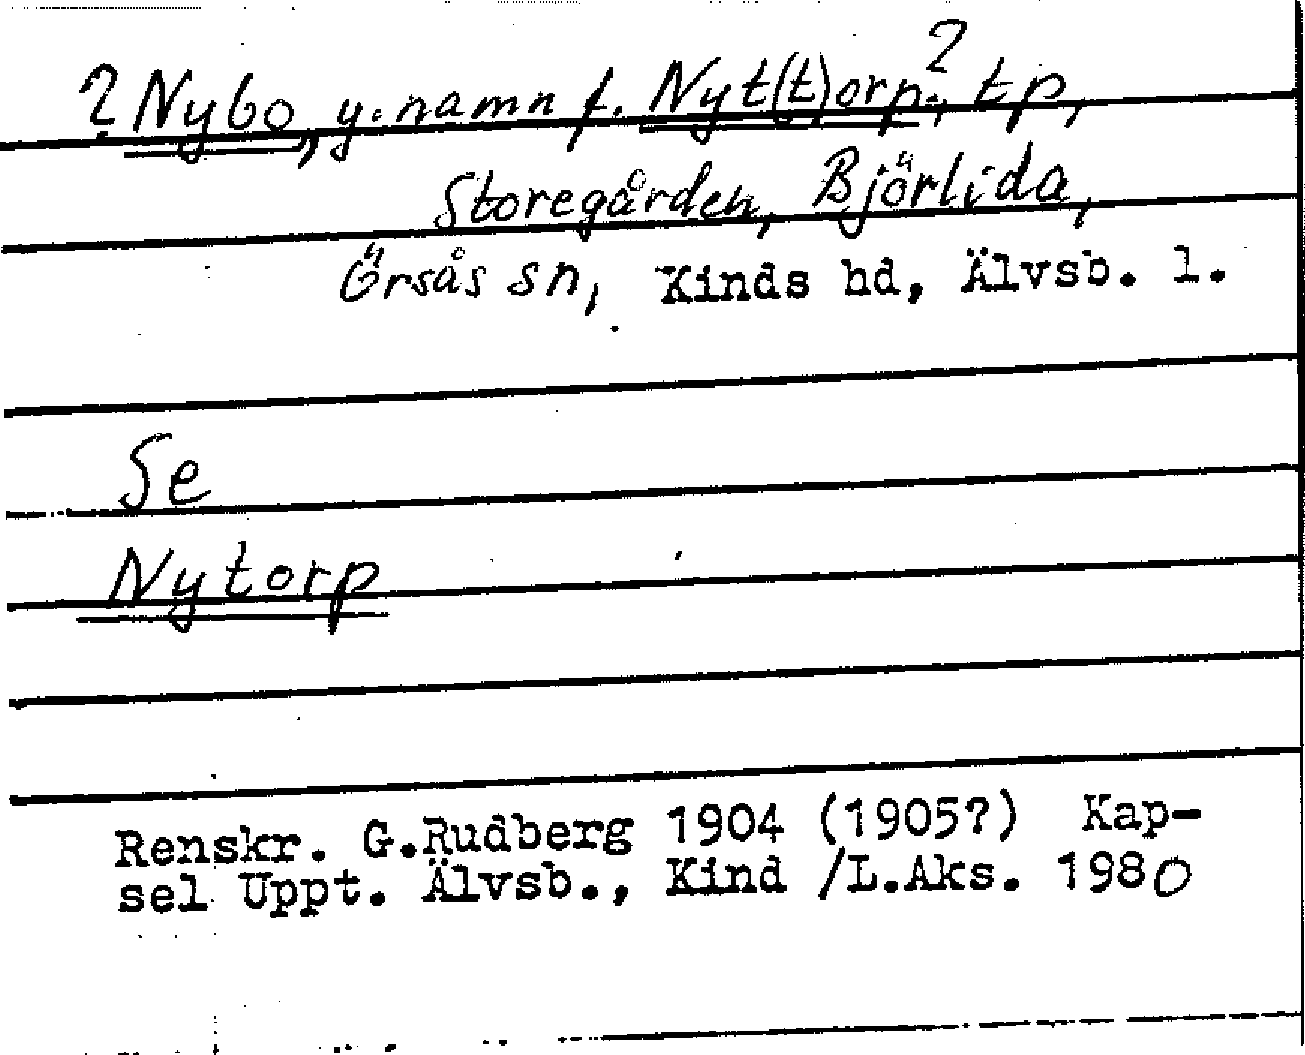 ? Nybo, y. namn f. Nyt(t)orp?, tp,
Storegården, Björlida,
Örsås sn, Kinds hd, Älvsb. l.
Se
Nytorp
Renskr. G.Rudberg 1904 (1905?) Kap-
sel Uppt. Älvsb., Kind /L.Aks. 1980